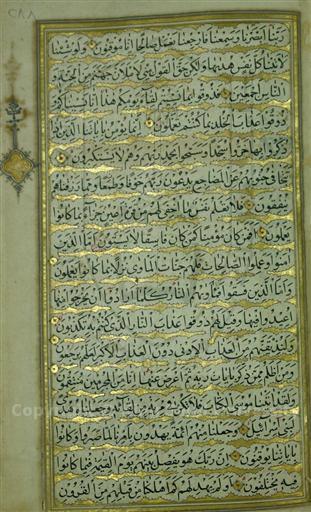 ربنا ابصرنا وسمعنا فارجعنا نعمل صالحا انا موقنون ولو شئنا
لاتينا كل نفس هديها ولكن حق القول مني لاملان جهنم من الجنة و
الناس اجمعين فذوقوا بما نسيتم لقاء يومكم هذا انا نسيناكم و
ذوقوا عذاب الخلد بما كنتم تعملون انما يؤمن باياتنا الذين اذا
ذكروا بها خروا سجدا وسبحوا بحمد ربهم وهم لا يستكبرون
تتجافى جنوبهم عن المضاجع يدعون ربهم خوفا وطمعا ومما رزقناهم
ينفقون فلا تعلم نفس ما اخفي لهم من قرة اعين جزاء بما كانوا
يعملون افمن كان مؤمنا كمن كان فاسقا لا يستوون اما الذين
امنوا وعملوا الصالحات فلهم جنات الماوى نزلا بما كانوا يعملون
واما الذين فسقوا فماويهم النار كلما ارادوا ان يخرجوا منها
اعيدوا فيها وقيل لهم ذوقوا عذاب النار الذي كنتم به تكذبون
ولنذيقنهم من العذاب الادنى دون العذاب الاكبر لعلهم يرجعون
ومن اظلم ممن ذكر بايات ربه ثم اعرض عنها انا من المجرمين منتقمون
ولقد اتينا موسى الكتاب فلا تكن في مرية من لقائه وجعلناه هدى
لبني اسرائيل وجعلنا منهم ائمة يهدون بامرنا لما صبروا وكانوا
باياتنا يوقنون ان ربك هو يفصل بينهم يوم القيمة فيما كانوا
فيه يختلفون اولم يهد لهم كم اهلكنا من قبلهم من القرون